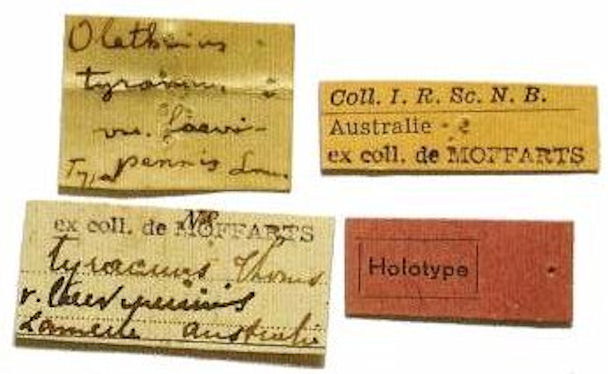 Olethrius
tyrannus
var. laevi-
pennis Lam.
Type
Coll. I. R. Sc. N. B.
Australie
ex coll. de MOFFARTS
ex coll. de MOFFARTS
tyrannus Thoms
v. laevipennis
Lameere Australie
Holotype